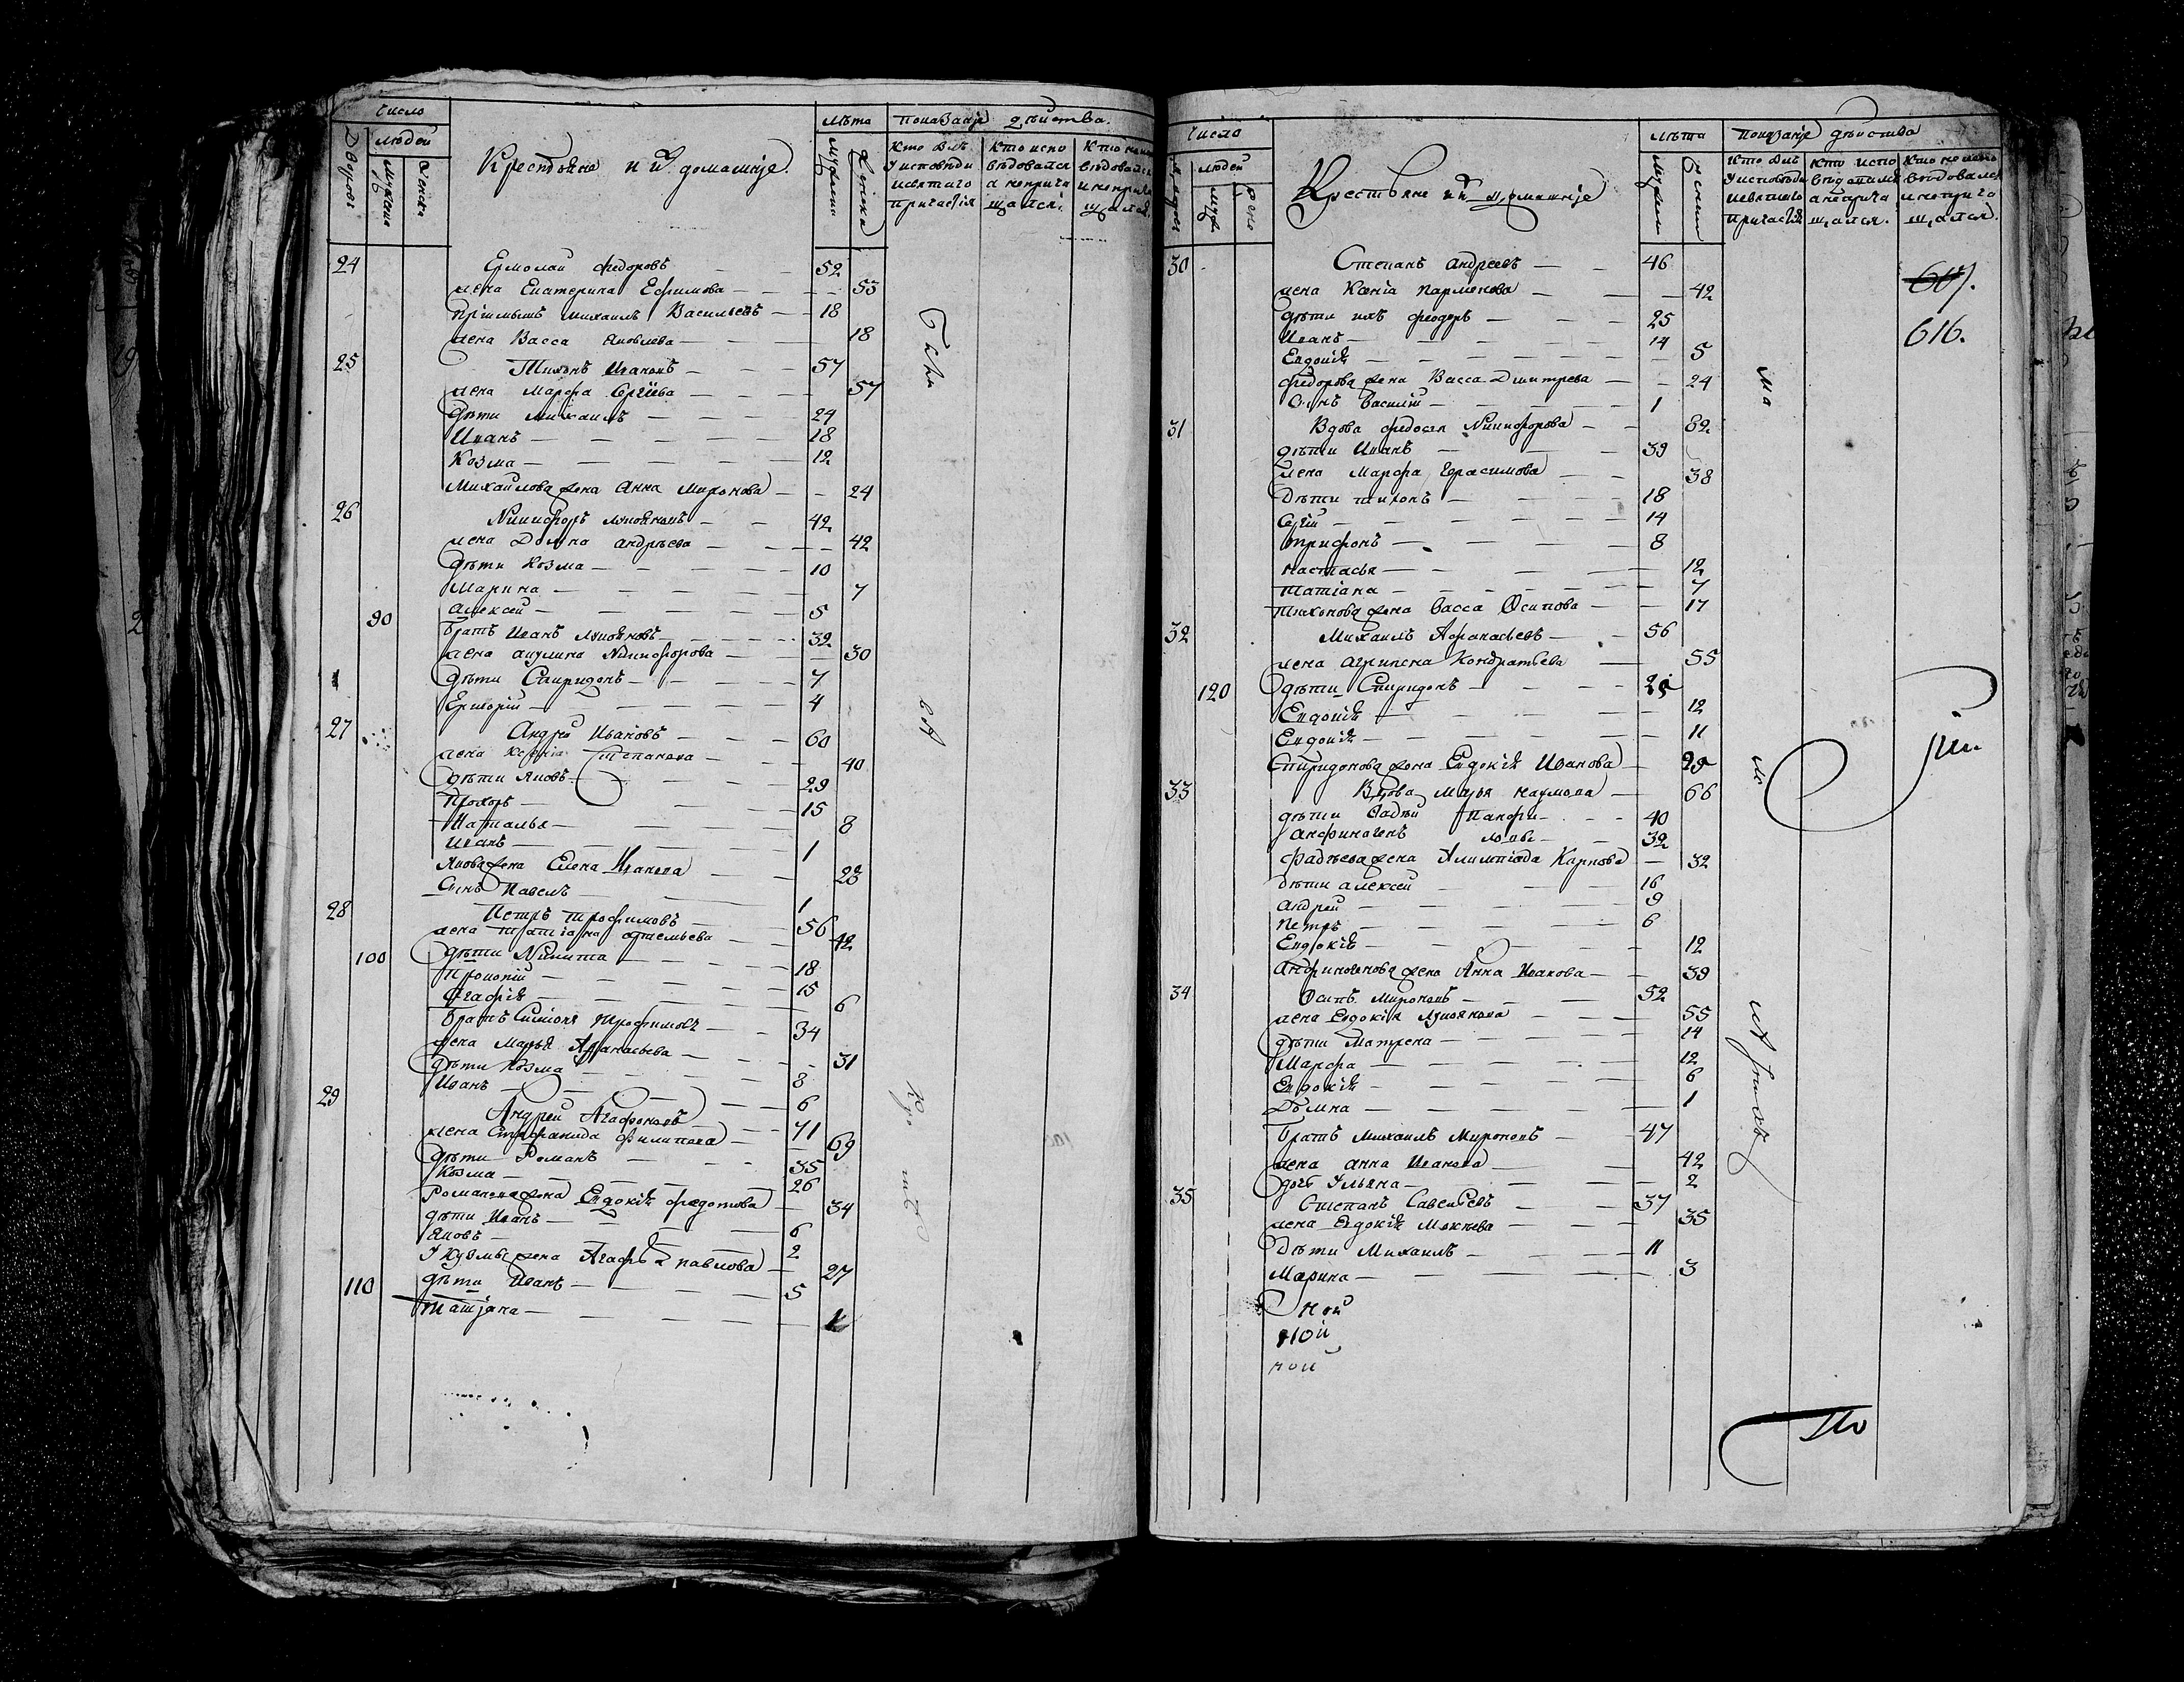 Число
людей
Дворовъ
Мужеска
Женска
Крестьяне и ихъ домашнїе.
лѣта
Мужеска
Женска
показанїе дѣйства.
Кто былъ у исповѣди и святаго причастїя
Кто исповѣдовался а непричащался.
24 Ермолай Федоровъ 52
жена Екатерина Ефимова 53
прїимышъ михаилъ Васильевъ 18
жена Васса Яковлева 18
25 Тихонъ Ивановъ 57
жена Марфа Сергїева 57
дѣти михаилъ 24
Иванъ 18
Козма 12
Михаилова жена Анна Миронова 24
26 Никифоръ лукояновъ 42
жена Домна андрѣева 42
дѣти Козма 10
Марина 7
90 алексей 5
братъ Иванъ лукояновъ 32
жена акулина Никифорова 30
дѣти Спиридонъ 7
Григорїй 4
27 Андрей Ивановъ 60
жена Ксенїа Степанова 40
дѣти Яковъ 29
Прохоръ 15
Наталья 8
Иванъ 1
Яковa жена Елена Иванова 23
Сынъ Павелъ 1
28 Петръ трофимовъ 56
жена татїана 42
100 дѣти Никита 18
Прокопїй 15
Агафїя 6
братъ Симїонъ трофимовъ 34
жена Марья Афанасьева 31
дѣти Козма 8
Иванъ 6
29 Андрей Агафоновъ 71
жена Стефанида филипова 69
дѣти Романъ 35
Козма 26
Романова жена Евдокїя федотова 34
дѣти Иванъ 6
Яковъ 2
У Кузмы жена Агафья павлова 27
110 дѣти Иванъ 5
татїана 1
Число
людей
Крестьяне и ихъ домашнїе
лѣта
показанїе дѣйства
Кто былъ у исповѣди и святаго причастїя
Кто исповѣдовался а непричащался.
Кто не исповѣдовался и непричащался.
30 Степанъ андреевъ 46
607.
жена Ксенїа парменова 42
дѣти ихъ феодоръ 25
616.
Иванъ 14
Евдокїя 5
федорова жена Васса Дмитрева 24
Сынъ василїй 1
31 Вдова федосья Никифорова 82
дѣти Иванъ 39
жена Марфа Герасимова 38
Дѣти тихонъ 18
Сергїй 14
трифонъ 8
настасья 12
татїана 7
тихонова жена васса Осипова 17
32 Михаилъ Афанасьевъ 56
жена агрипена Кондратьева 55
120 дѣти Спиридонъ 25
Евдокїя 12
Евдокїя 11
Спиридонова жена Евдокїя Иванова 25
33 Вдова марья наумова 66
дѣти Фадѣй Панфи- 40
анфиногенъ ловы 32
фадѣева жена Алимпїада Карпова 32
дѣти алексей 16
андрей 9
петръ 6
Евдокїя 12
анфиногенова жена Анна Иванова 39
34 Осипъ мироновъ 52
жена Евдокїя лукоянова 55
дѣти Матрена 14
Марфа 12
Евдокїя 6
Домна 1
братъ михаилъ Мироновъ 47
жена анна Иванова 42
дочь Ульяна 2
35 Степанъ Савельевъ 37
жена Евдокїя Мокеева 35
Дѣти михаилъ 11
Марина 3
ной
ной
ной